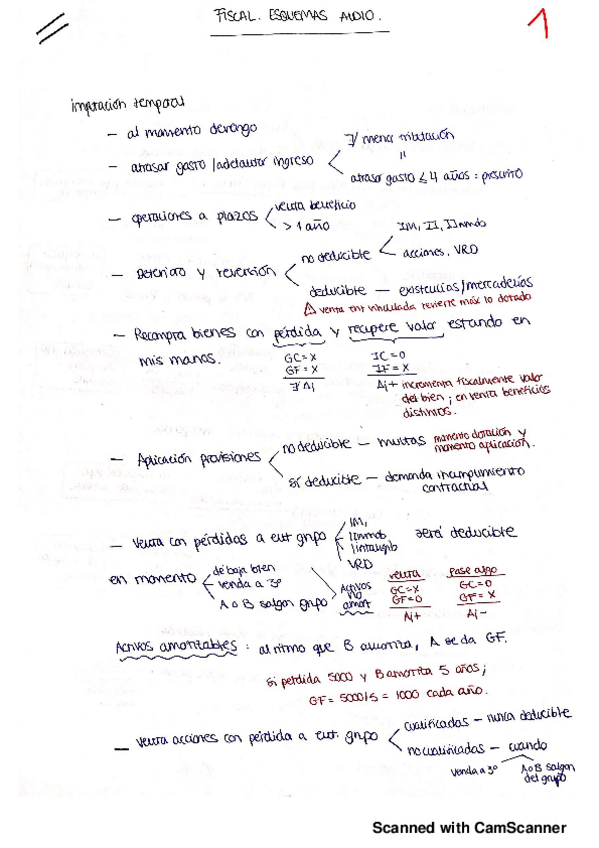 FISCAL. ESQUEMAS AUDIO.
1
imputación temporal
- al momento devengo
- atrasar gasto / adelantar ingreso
∄ menor tributación
"
atrasar gasto ≤ 4 años : prescrito
- operaciones a plazos
venta beneficio
> 1 año
- Deterioro y reversión
no deducible
IM, II, IInmob
acciones, VRD
deducible — existencias/mercaderías
⚠ venta ent vinculada revierte máx lo dotado
- Recompra bienes con pérdida y recupere valor estando en
mis manos.
GC = X
GF = X
∄ Aj
IC = 0
IF = X
Aj + incrementa fiscalmente valor
del bien ; en venta beneficios
distintos.
- Aplicación provisiones
no deducible — multas momento dotación y
momento aplicación.
sí deducible — demanda incumplimiento
contractual
- Venta con pérdidas a ent grupo
IM,
IInmob
Iintangib
VRD
será deducible
en momento
de baja bien
venda a 3º
A o B salgan grupo
Activos
no
amort
venta
GC = X
GF = 0
Aj +
pase algo
GC = 0
GF = X
Aj -
Activos amortizables : al ritmo que B amortita, A se da GF.
si perdida 5000 y B amortita 5 años ;
GF = 5000/5 = 1000 cada año.
- Venta acciones con pérdida a ent. grupo
cualificadas — nunca deducible
no cualificadas — cuando
venda a 3º
A o B salgan
del grupo
Scanned with CamScanner